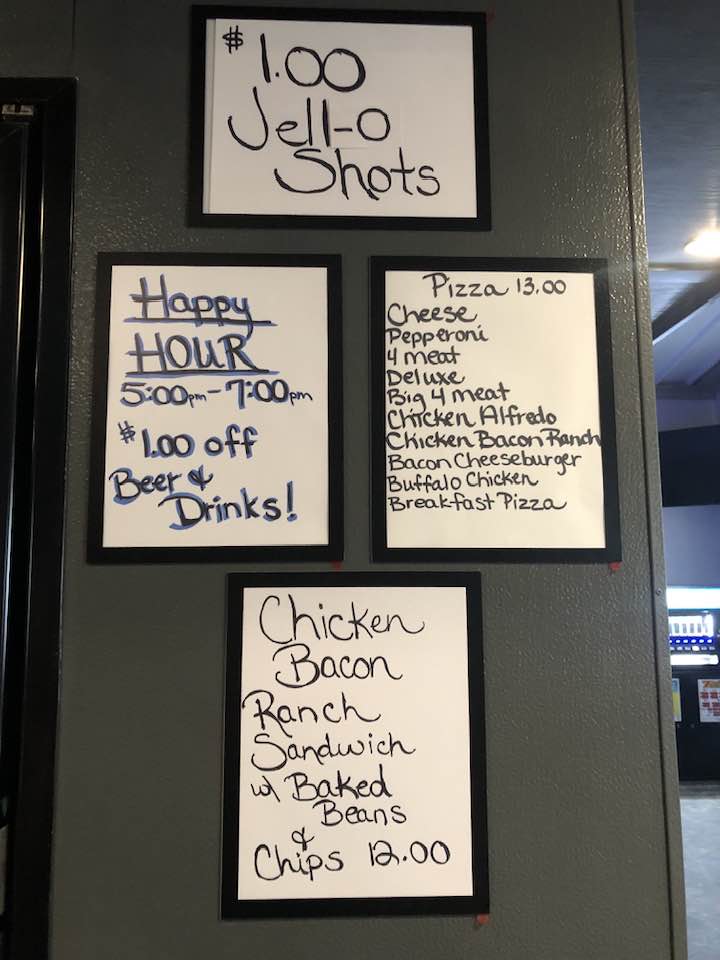 $1.00
Jell-O
Shots
Happy
HOUR
5:00pm-7:00pm
$1.00 off
Beer &
Drinks!
Pizza 13.00
Cheese
Pepperoni
4 meat
Deluxe
Big 4 meat
Chicken Alfredo
Chicken Bacon Ranch
Bacon Cheeseburger
Buffalo Chicken
Breakfast Pizza
Chicken
Bacon
Ranch
Sandwich
w/ Baked
Beans
&
Chips 12.00